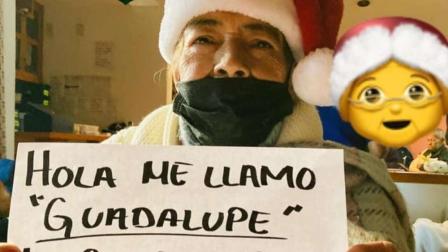 HOLA ME LLAMO
"GUADALUPE"